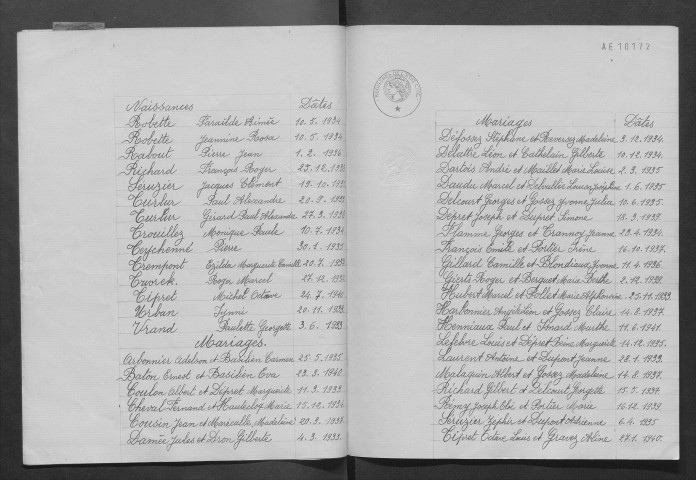 Naissances Dâtes
Robette Faraïlde Aimée 10.5.1934
Robette Jeannine Rosa 10.5.1934
Rabout Pierre Jean 1.2.1936
Richard François Roger
Seruzier Jacques Clément 19.10.
Turlur Paul Alexandre 28.9.
Turlur Gérard Paul Alexandre 27.3.
Trouillez Monique Paule 10.7.1934
Teychenné Pierre 30.1.1935
Trempont Ezilda Marguerite Camille 20.7.
Tworek Roza Marcel 27.12.
Tipret Michel Octave 24.7.
Urban Irénné 20.11.
Vrand Paulette Georgette 3.6.
Mariages.
Arbonnier Adelson et Basilien Carmen 25.5.1935
Baton Ernest et Basilien Eva 23.3.1940
Coulon Albert et Dépret Marguerite 11.3.1933
Cheval Fernand et Hautecloq Marie 15.12.1934
Cousin Jean et Marécalle Madeleine 20.3.1937
Damée Jules et Dron Gilberte 4.3.1933
AE 10172
Mariages Dâtes
Défossez Stéphane et Reversez Madeleine 3.12.1934.
Delattre Léon et Cathelain Gilberte 10.12.1934.
Dartois André et Maillet Marie Louise 2.3.1935
Daudu Marcel et Delvallée Louise Joséphine 1.6.1935
Delcourt Georges et Gossez Yvonne Julia 10.6.1935.
Dépret Joseph et Dupret Simone 18.3.1939.
Flamme Georges et Crannoy Jeanne 23.4.1934.
François Emile et Portier Irène 16.10.1937.
Gillard Camille et Blondiaux Yvonne 11.4.1936.
Gierts Roger et Berquet Marie Berthe 2.12.1939.
Hubert Marcel et Pollet Marie Alphonsine 25.11.1933.
Harbonnier Angiolilien et Gossez Claire 14.8.1937.
Henniaux Paul et Isnard Marthe 11.6.1941.
Lefebre Louis et Dépret Reine Marguerite 14.12.1935.
Laurent Antoine et Dupont Jeanne 28.1.1933.
Malaquin Albert et Gossez Madeleine 14.8.1937.
Richard Gilbert et Delcourt Georgette 15.5.1937.
Rémy Joseph Eloi et Portier Marie 16.12.1939.
Seruzier Zéphir et Dupont Adrienne 6.4.1935.
Tipret Octave Louis et Gravez Aline 27.1.1940.